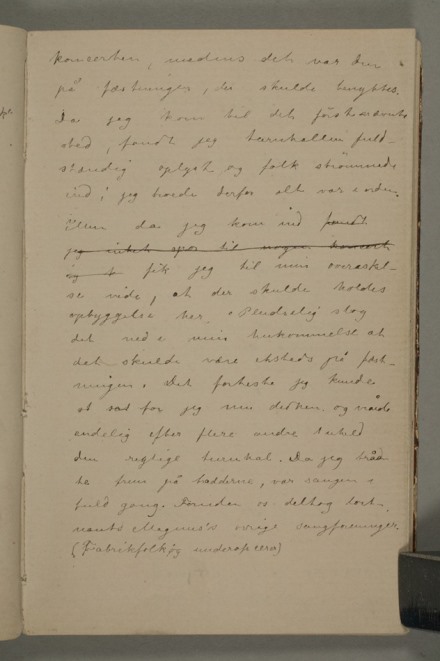 koncerten, medens det var den
på fæstningen, der skulde benyttes.
Da jeg kom til det
sted, fandt jeg turnhallen fuld-
stændig oplyst og folk strømmede
ind; jeg troede derfor alt var i orden.
Men da jeg kom ind fandt
jeg intet spor til nogen koncert
og fik jeg til min overaskel-
se vide, at der skulde holdes
opbyggelse her. Pludselig slog
det ned i min hukommelse at
det skulde være etsteds på fæst-
ningen. Det forteste jeg kunde
for jeg nu derhen og nåede
endelig efter flere andre uheld
den rigtige turnhal. Da jeg tråd-
te frem på brædderne, var sangen i
fuld gang. Foruden os deltog løit-
nants Magnus's øvrige sangforeninger.
(Fabrikfolk og underofficerer)